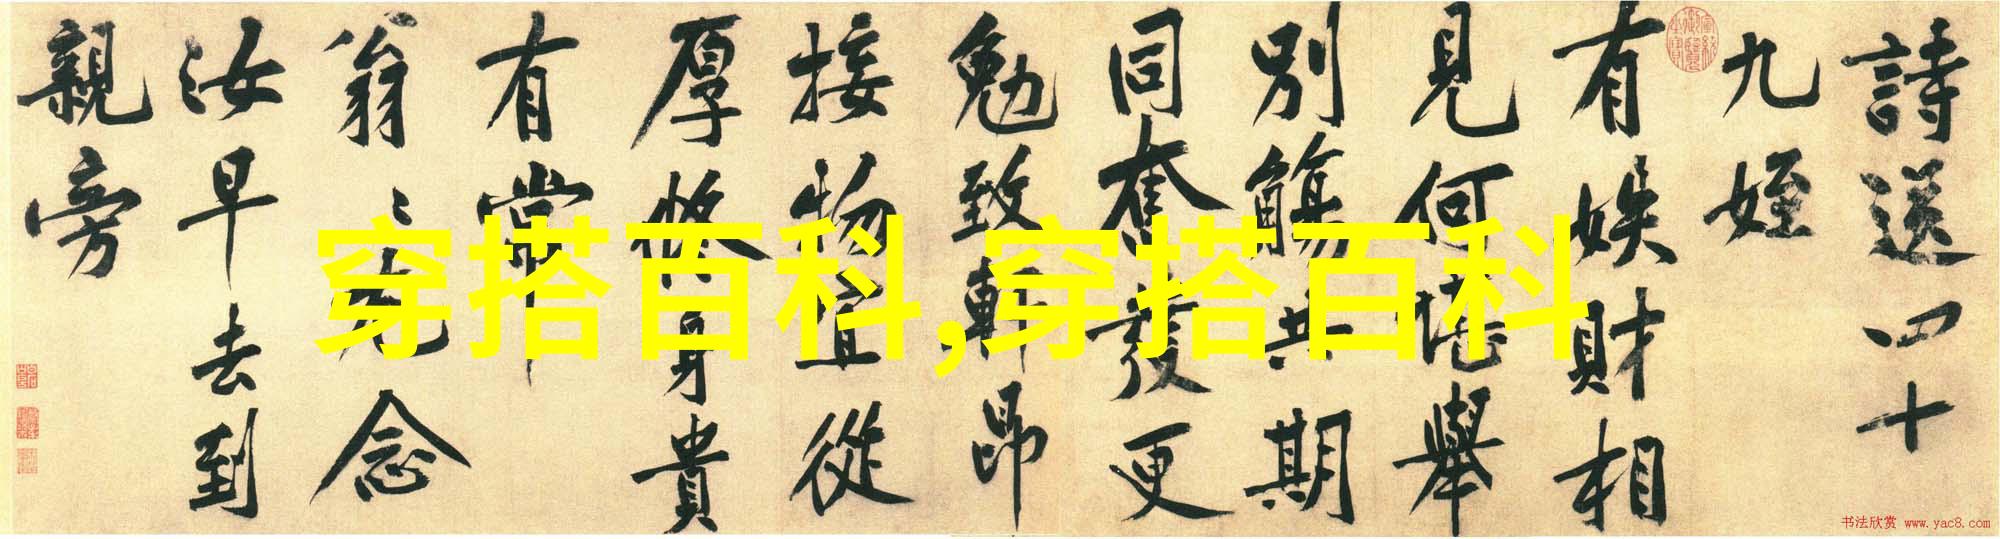 詩送四十
九姪
有娛財相
見何堪舉
別觴共期
同奮發更
勉致軒昂
接物宜從
厚修身貴
有常
翁〻尤念
汝早去到
親旁
穿搭百科,穿搭百科
书法欣赏 www.yac8.com